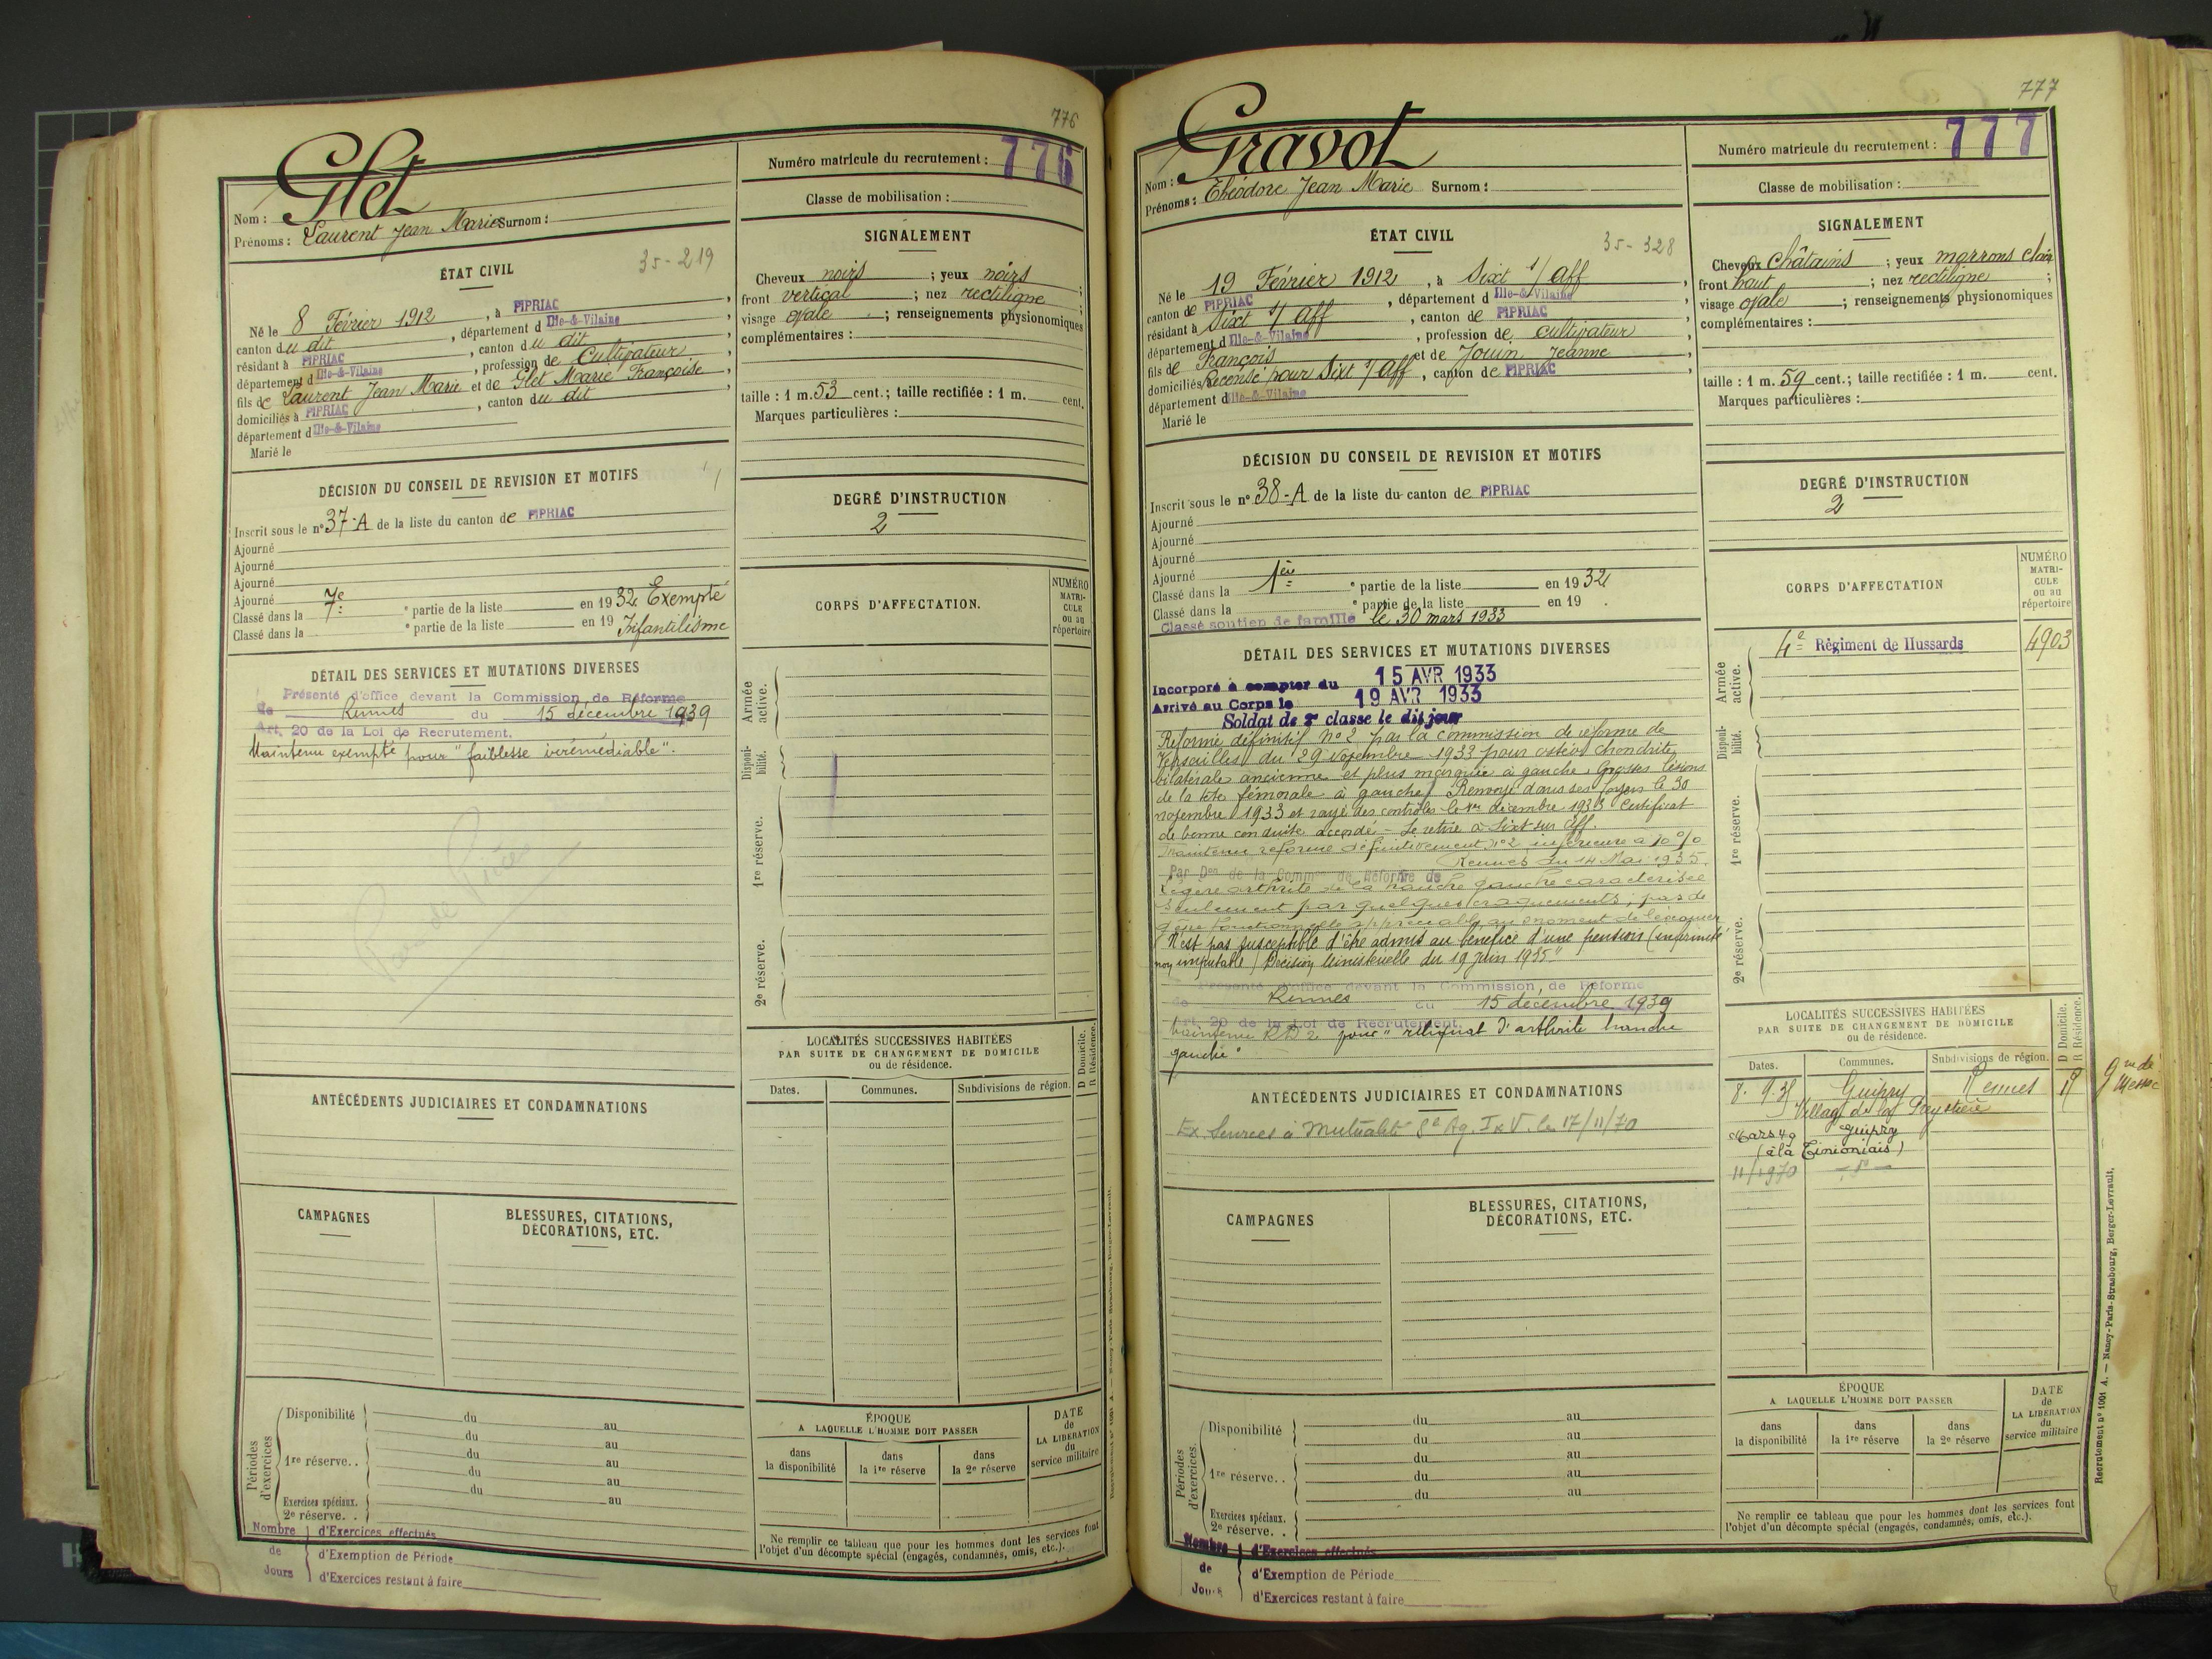 776
Glet
Nom :
Prénoms : Laurent Jean Marie Surnom :
Numéro matricule du recrutement : 776
Classe de mobilisation :
ÉTAT CIVIL
35-219
Né le 8 Février 1912, à PIPRIAC,
canton du dit, département d Ille-&-Vilaine,
résidant à PIPRIAC, canton du dit,
département d Ille-&-Vilaine, profession de Cultivateur,
fils de Laurent Jean Marie et de Glet Marie Françoise,
domiciliés à PIPRIAC, canton du dit,
département d Ille-&-Vilaine
Marié le
SIGNALEMENT
Cheveux noirs ; yeux noirs ;
front vertical ; nez rectiligne ;
visage ovale ; renseignements physionomiques
complémentaires :
taille : 1 m. 53 cent.; taille rectifiée : 1 m. cent.
Marques particulières :
DÉCISION DU CONSEIL DE REVISION ET MOTIFS
Inscrit sous le n° 37-A de la liste du canton de PIPRIAC
Ajourné
Ajourné
Ajourné
Ajourné
Classé dans la 7e partie de la liste en 1932 Exempté
Classé dans la e partie de la liste en 19 Infantilisme
DEGRÉ D'INSTRUCTION
2
CORPS D'AFFECTATION.
NUMÉRO
MATRI-
CULE
ou au
répertoire
DÉTAIL DES SERVICES ET MUTATIONS DIVERSES
Présenté d'office devant la Commission de Réforme
de Rennes du 15 décembre 1939
Art. 20 de la Loi de Recrutement.
Maintenu exempté pour "faiblesse irrémédiable".
Armée
active.
Disponi-
bilité.
1re réserve.
2e réserve.
LOCALITÉS SUCCESSIVES HABITÉES
PAR SUITE DE CHANGEMENT DE DOMICILE
ou de résidence.
D Domicile.
R Résidence.
Dates. Communes. Subdivisions de région.
ANTÉCÉDENTS JUDICIAIRES ET CONDAMNATIONS
CAMPAGNES
BLESSURES, CITATIONS,
DÉCORATIONS, ETC.
Périodes
d'exercices
Disponibilité du au
du au
1re réserve.. du au
du au
du au
Exercices spéciaux.
2e réserve. .
ÉPOQUE
A LAQUELLE L'HOMME DOIT PASSER
dans
la disponibilité
dans
la 1re réserve
dans
la 2e réserve
DATE
de
LA LIBÉRATION
du
service militaire
Ne remplir ce tableau que pour les hommes dont les services font
l'objet d'un décompte spécial (engagés, condamnés, omis, etc.).
Nombre
de
Jours
d'Exercices effectués
d'Exemption de Période
d'Exercices restant à faire
777
Gravot
Nom :
Prénoms : Théodore Jean Marie Surnom :
Numéro matricule du recrutement : 777
Classe de mobilisation :
ÉTAT CIVIL
35-328
Né le 19 Février 1912, à Sixt s/ Aff,
canton de PIPRIAC, département d Ille-&-Vilaine,
résidant à Sixt s/ Aff, canton de PIPRIAC,
département d Ille-&-Vilaine, profession de cultivateur
fils de François et de Jouin Jeanne,
domiciliés Recensé pour Sixt s/ Aff, canton de PIPRIAC,
département d Ille-&-Vilaine
Marié le
SIGNALEMENT
Cheveux châtains ; yeux marrons clair
front haut ; nez rectiligne ;
visage ovale ; renseignements physionomiques
complémentaires :
taille : 1 m. 59 cent.; taille rectifiée : 1 m. cent.
Marques particulières :
DÉCISION DU CONSEIL DE REVISION ET MOTIFS
Inscrit sous le n° 38-A de la liste du canton de PIPRIAC
Ajourné
Ajourné
Ajourné
Ajourné
Classé dans la 1ère partie de la liste en 1932
Classé dans la e partie de la liste en 19 .
Classé soutien de famille le 30 mars 1933
DEGRÉ D'INSTRUCTION
2
CORPS D'AFFECTATION
NUMÉRO
MATRI-
CULE
ou au
répertoire
4e Régiment de Hussards 4903
DÉTAIL DES SERVICES ET MUTATIONS DIVERSES
Incorporé à compter du 15 AVR 1933
Arrivé au Corps le 19 AVR 1933
Soldat de 2e classe le dit jour
Réformé définitif n°2 par la commission de réforme de
Versailles du 29 Novembre 1933 pour ostéochondrite
bilatérale ancienne et plus marquée à gauche. Grosses lésions
de la tête fémorale à gauche. Renvoyé dans ses foyers le 30
novembre 1933 et rayé des contrôles le 1er décembre 1933 Certificat
de bonne conduite accordé - Se retire à Sixt sur Aff.
Maintenu réformé définitivement n°2 inférieure à 10 %
Rennes du 14 Mai 1935.
Par Don de la Comm on de Réforme de
Légère arthrite de la hanche gauche caractérisée
seulement par quelques craquements, pas de
gêne fonctionnelle appréciable au moment de l'examen
N'est pas susceptible d'être admis au bénéfice d'une pension (infirmité
non imputable) Décision ministérielle du 19 juin 1935"
Présenté d'office devant la Commission de Réforme
de Rennes du 15 décembre 1939
Art. 20 de la Loi de Recrutement.
Maintenu RD 2 pour "reliquat d'arthrite hanche
gauche"
Armée
active.
Disponi-
bilité.
1re réserve.
2e réserve.
LOCALITÉS SUCCESSIVES HABITÉES
PAR SUITE DE CHANGEMENT DE DOMICILE
ou de résidence.
D Domicile.
R Résidence.
Dates. Communes. Subdivisions de région.
8. 9.35 Guipry Rennes
Village de la
Mars 49 Guipry
(à la Tinioniais)
11/1970
ANTÉCÉDENTS JUDICIAIRES ET CONDAMNATIONS
le 17/11/70
CAMPAGNES
BLESSURES, CITATIONS,
DÉCORATIONS, ETC.
Périodes
d'exercices.
Disponibilité du au
du au
1re réserve.. du au
du au
du au
Exercices spéciaux.
2e réserve. .
ÉPOQUE
A LAQUELLE L'HOMME DOIT PASSER
dans
la disponibilité
dans
la 1re réserve
dans
la 2e réserve
DATE
de
LA LIBÉRATION
du
service militaire
Ne remplir ce tableau que pour les hommes dont les services font
l'objet d'un décompte spécial (engagés, condamnés, omis, etc.).
Nombre
de
Jours
d'Exercices effectués
d'Exemption de Période
d'Exercices restant à faire
Recrutement n° 1001 A. — Nancy-Paris-Strasbourg, Berger-Levrault.